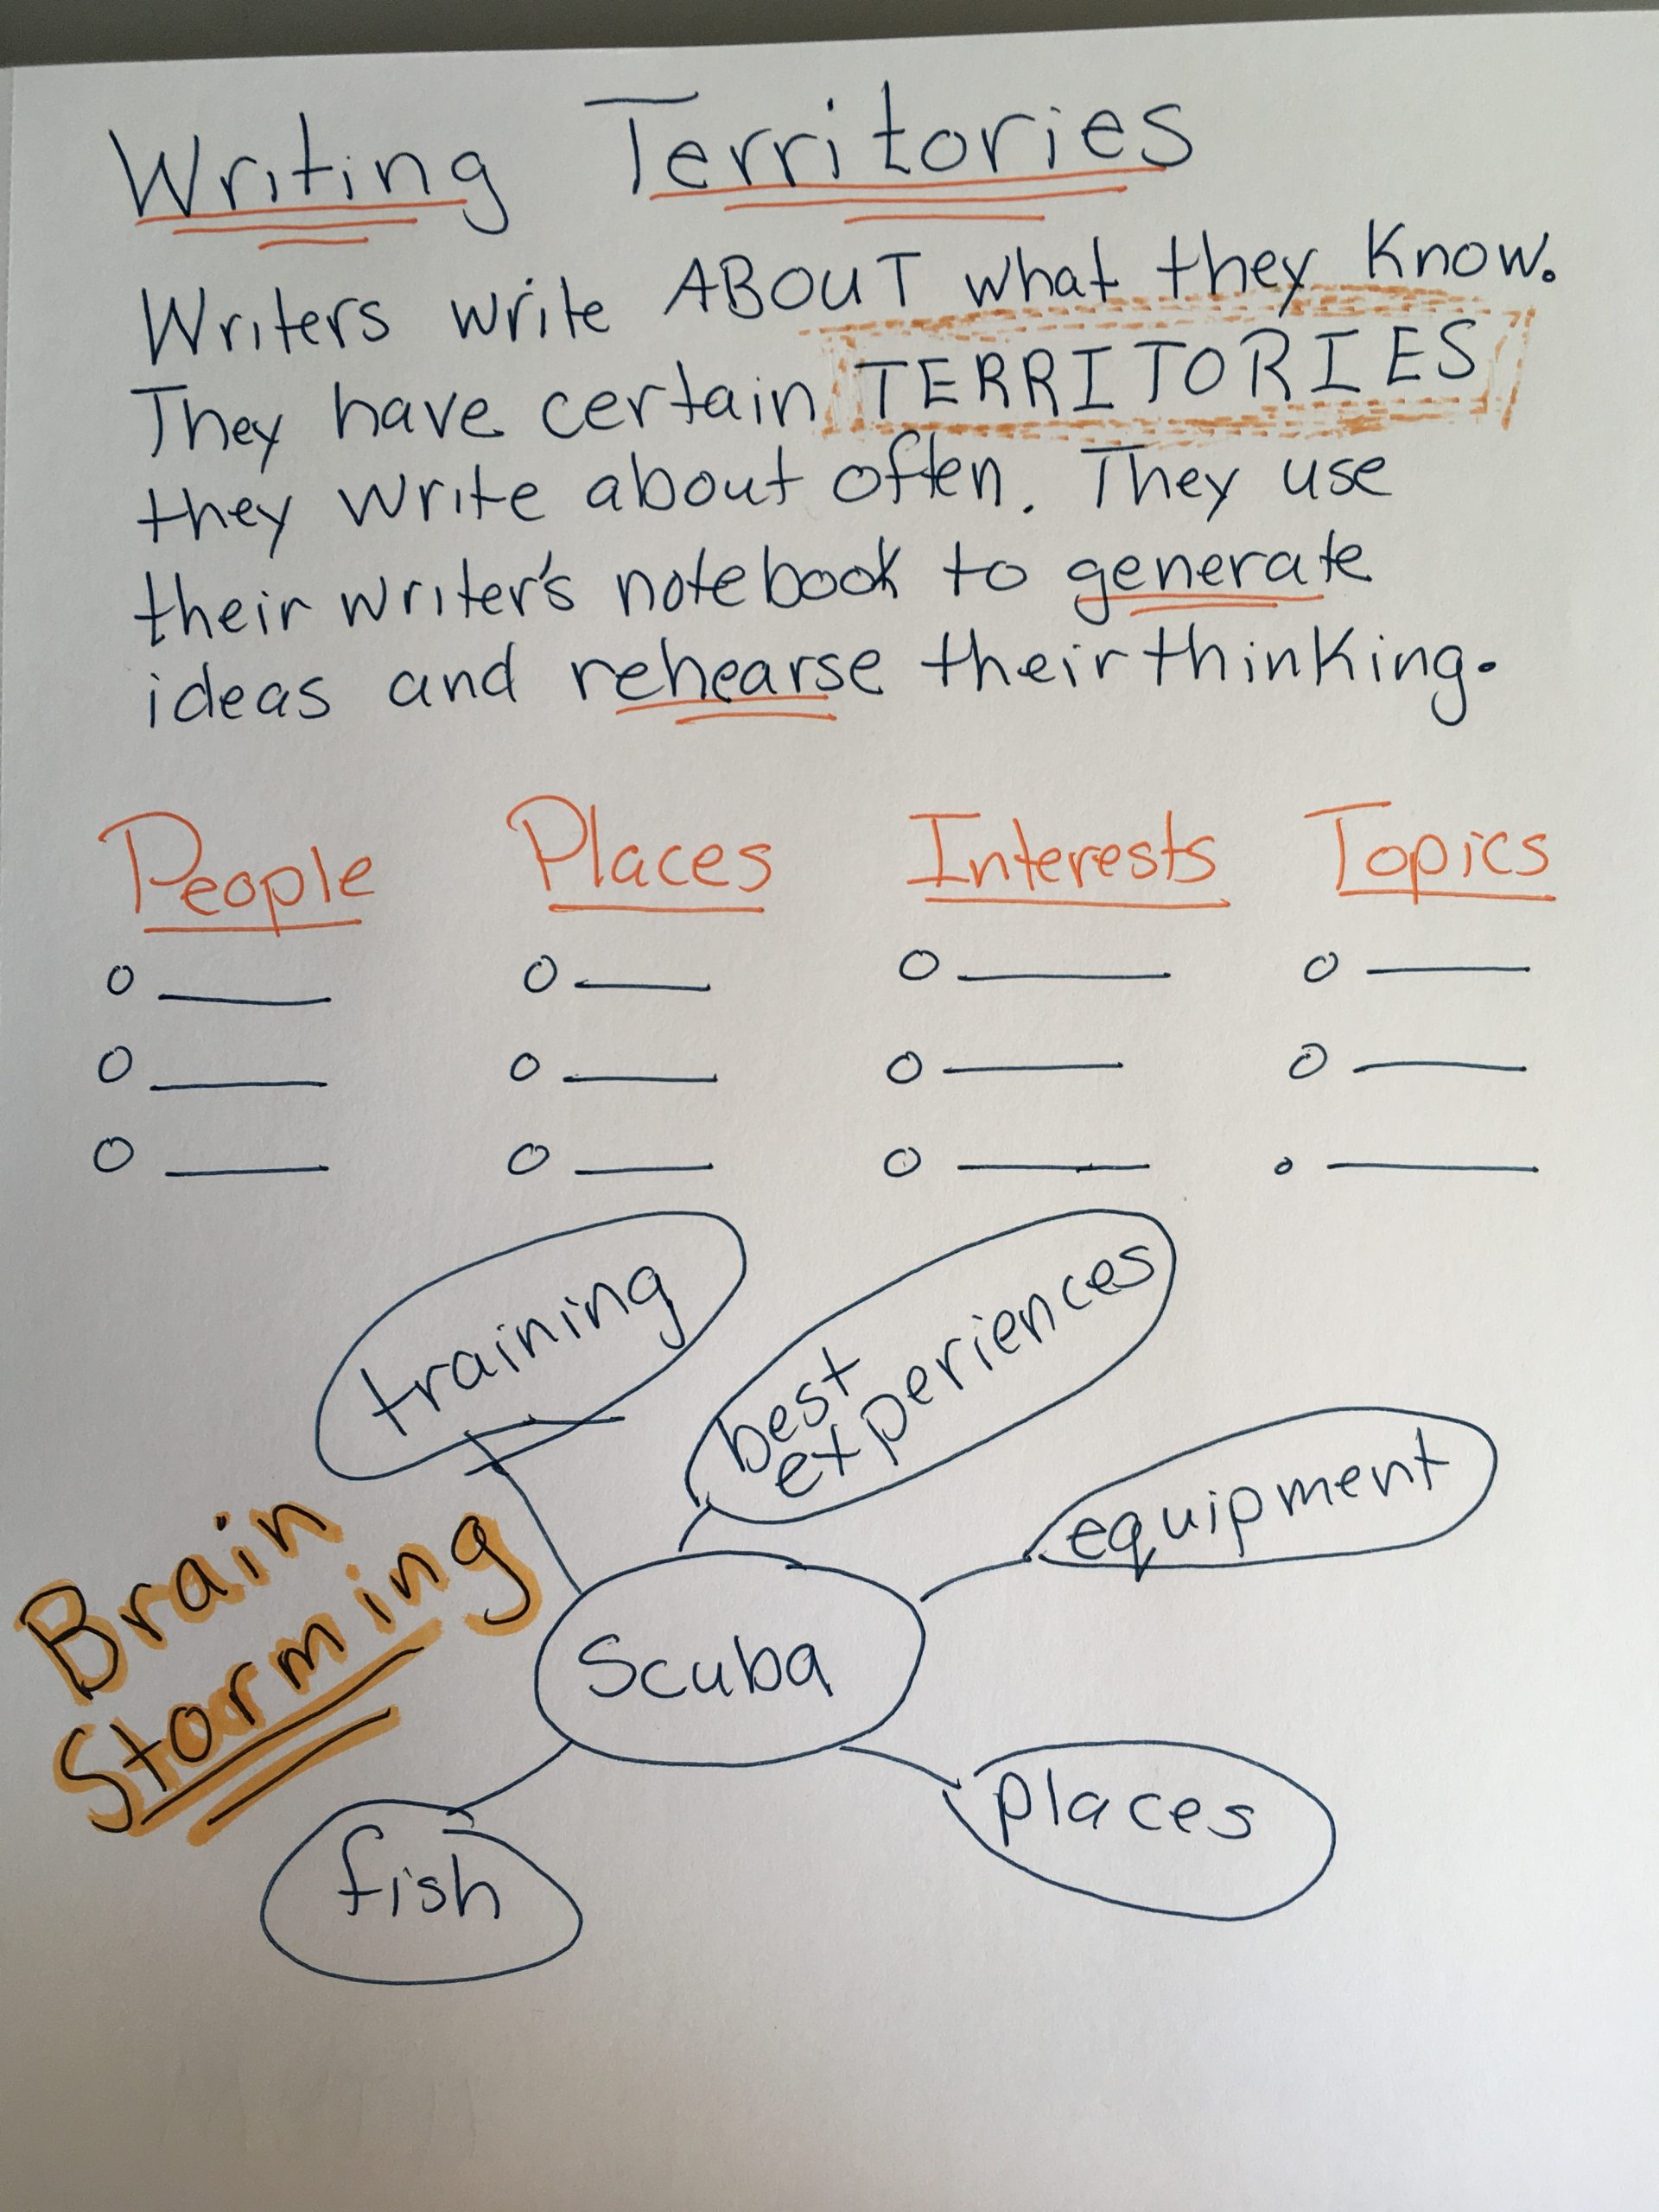 Writing Territories
Writers write ABOUT what they know.
They have certain TERRITORIES
they write about often. They use
their writer's notebook to generate
ideas and rehearse their thinking.
People Places Interests Topics
training
best
experiences
equipment
Brain
Storming
Scuba
places
fish